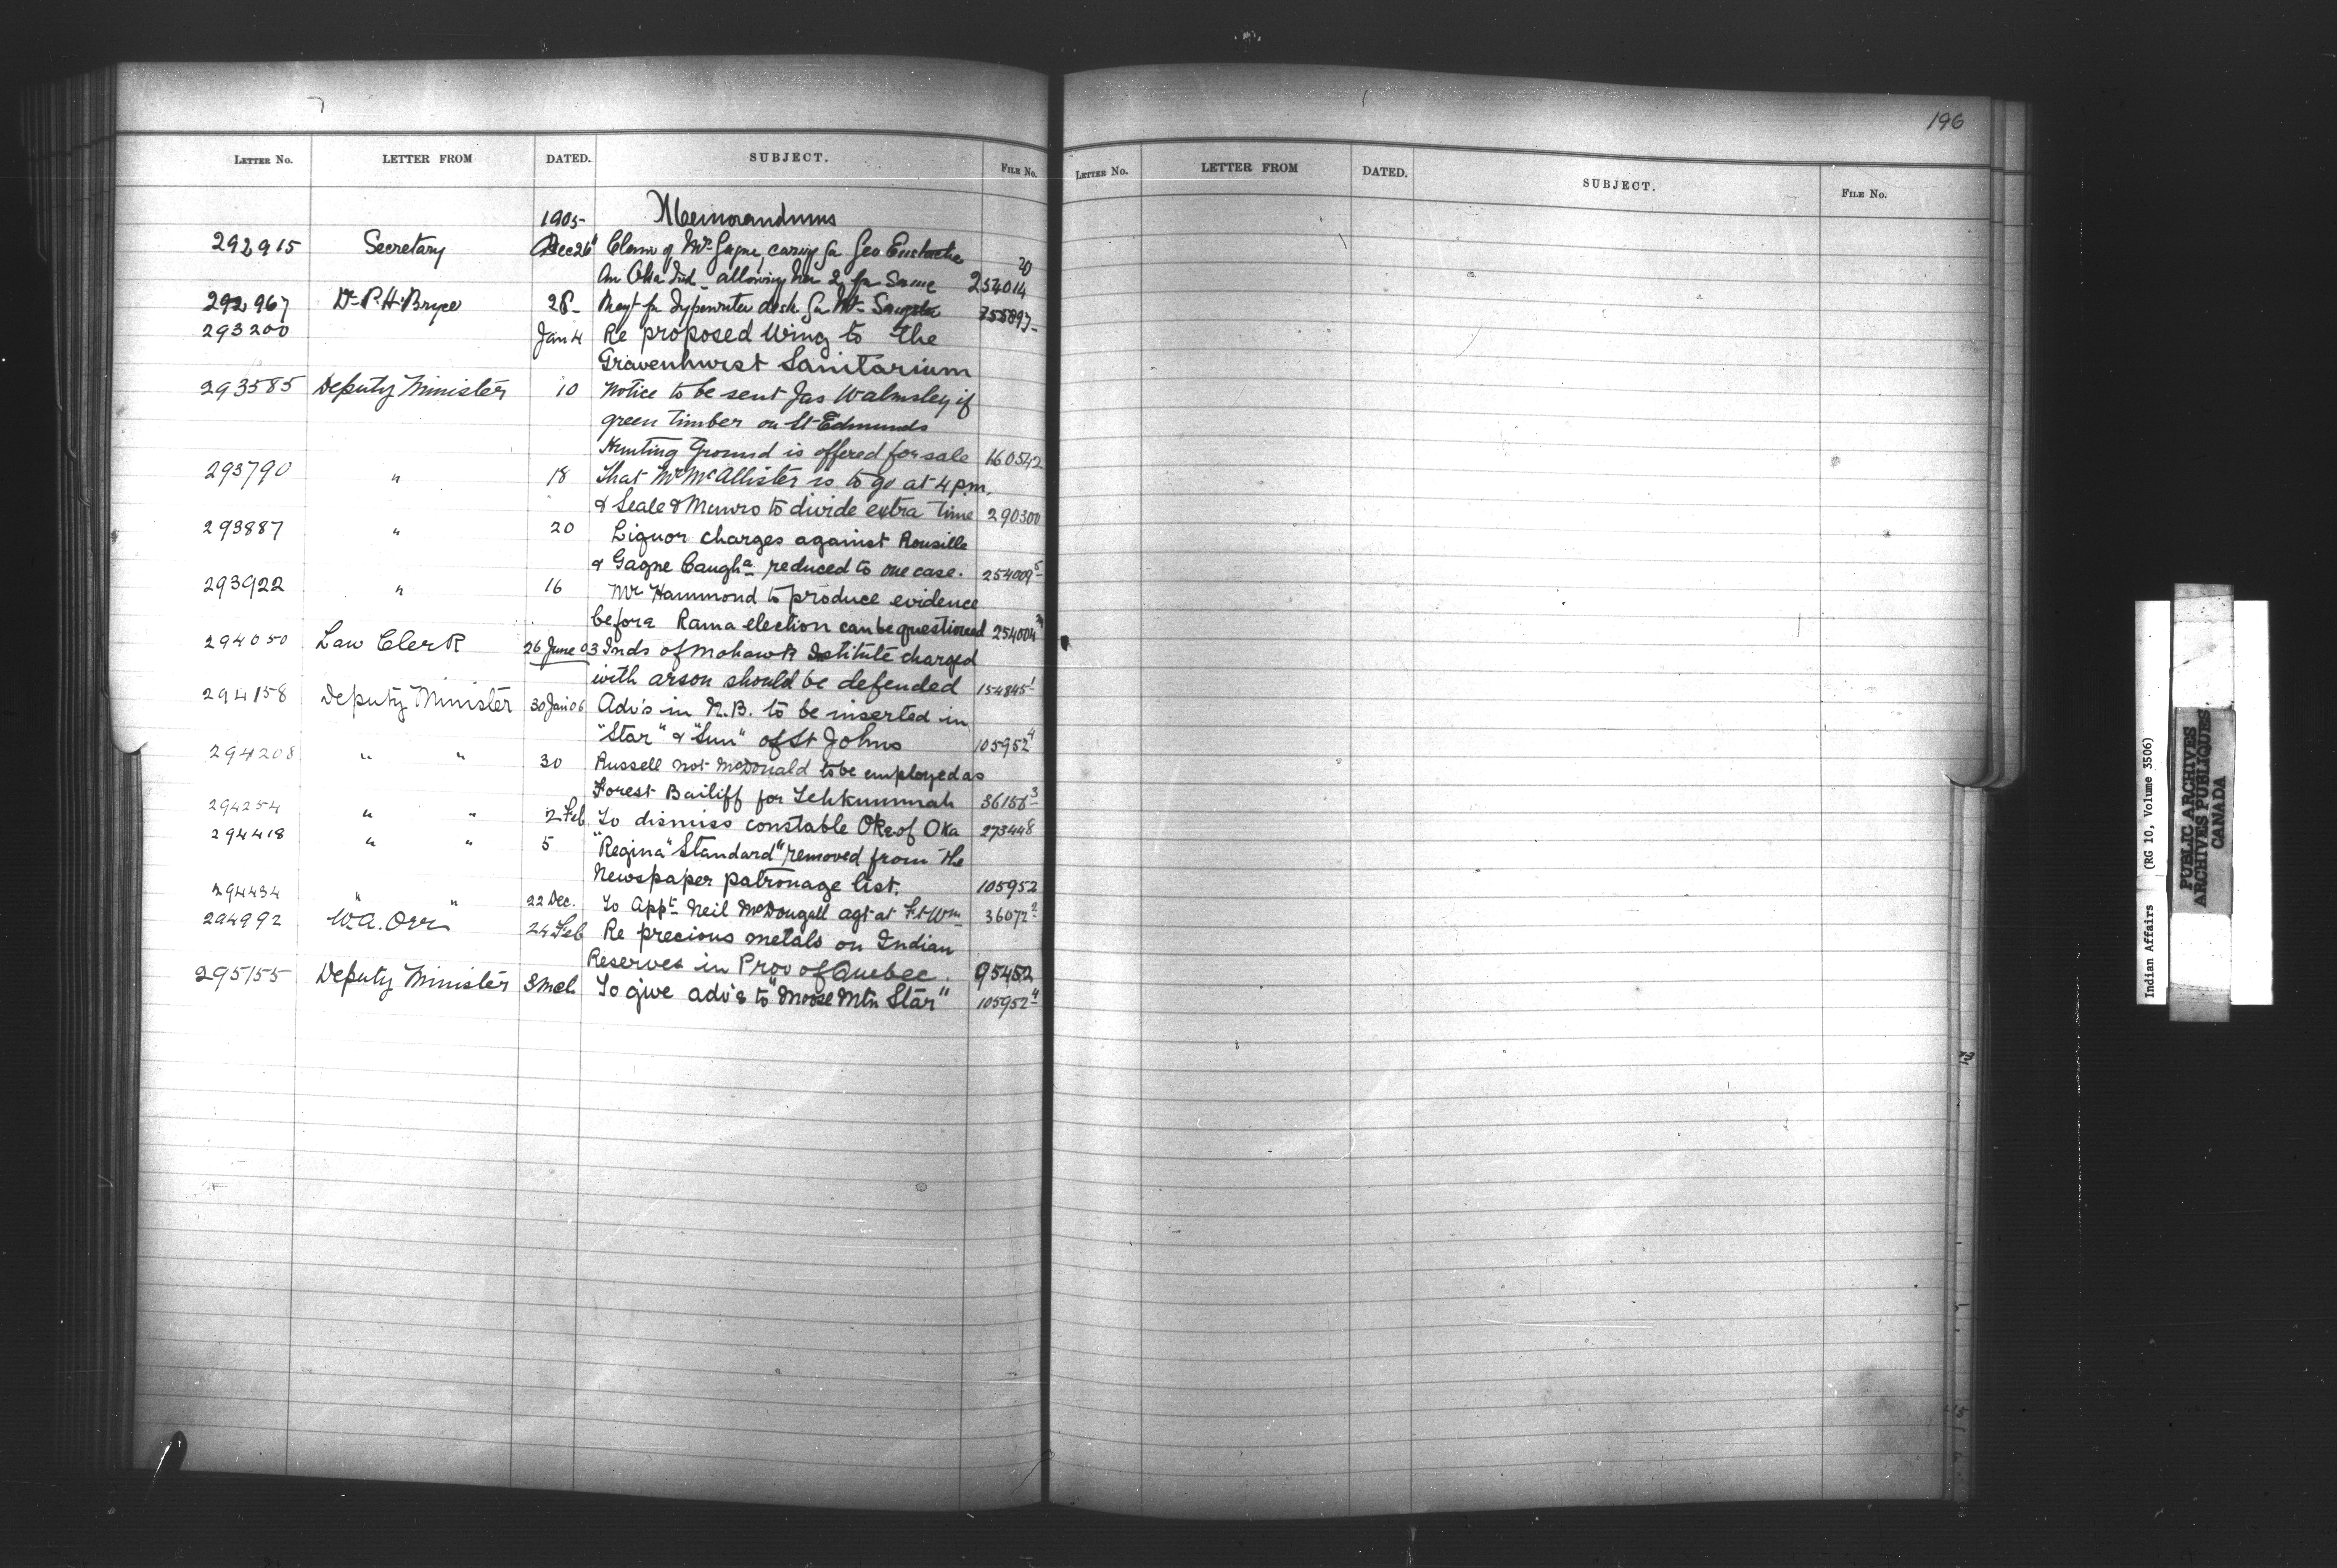 LETTER No. LETTER FROM DATED. SUBJECT. FILE No.
1905- Memorandums
292915 Secretary Dec 26 Claim of Mrs Gagne caring for Geo Eustache
An Oka Ind - allowing her 2 for Same 254014 20
292967 Dr P.H. Bryce 28- Reqt for Typewriter desk for Mr 255897-
293200 Jan 4 Re proposed Wing to the
Gravenhurst Sanitarium
293585 Deputy Minister 10 Notice to be sent Jas Walmsley if
green timber on St Edmunds
Hunting Ground is offered for sale 160542
293790 " 18 That Mr McAllister is to go at 4 p.m.
& Seale & Munro to divide extra time 290300
293887 " 20 Liquor charges against Rousille
& Gagne Caugha reduced to one case. 254009 5
293922 " 16 Mr Hammond to produce evidence
before Rama election can be questioned 254004
294050 Law Clerk 26 June 03 Inds of Mohawk Institute charged
with arson should be defended 154845 1
294158 Deputy Minister 30 Jan 06 Adv's in N.B. to be inserted in
"Star" & "Sun" of St Johns 105952 4
294208 " " 30 Russell not McDonald to be employed as
Forest Bailiff for Tehkummah 36156 3
294254 " " 2 Feb To dismiss constable Oke of Oka 273448
294418 " " 5 "Regina "Standard" removed from the
Newspaper patronage list. 105952
294434 " " 22 Dec. To Appt Neil McDougall agt at Ft Wm 36072 2
294992 W.A. Orr 24 Feb Re precious metals on Indian
Reserves in Prov of Quebec. 95452
295155 Deputy Minister 3 Mch To give adv's to "Moose Mtn Star" 105952 4
196
LETTER No. LETTER FROM DATED. SUBJECT. FILE No.
Indian Affairs (RG 10, Volume 3506)
PUBLIC ARCHIVES
ARCHIVES PUBLIQUES
CANADA